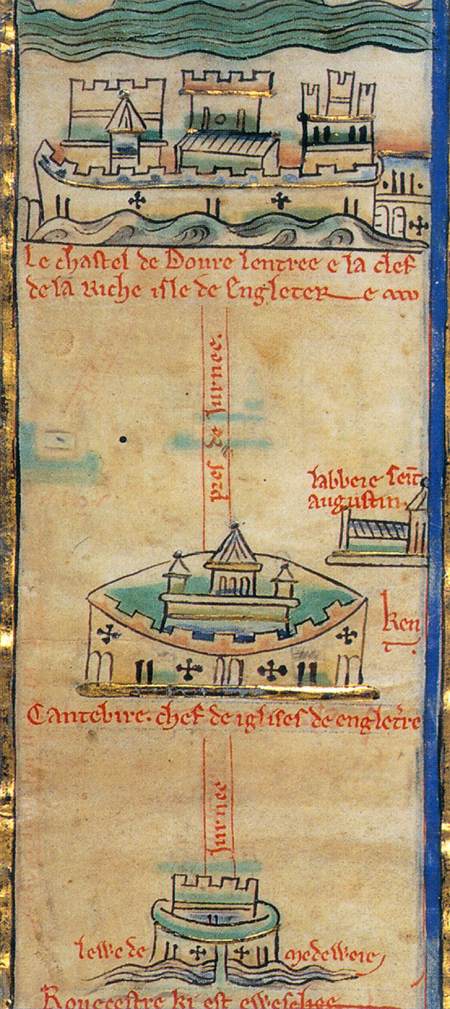 Le chastel de Dovre lentree e la clef
de la riche isle de Engleter e
pres de Jurnee.
labbeie seint
augustin.
Ken
t.
Cantebire. chef de iglises de engletre
Jurnee
lewe de Medeweie
Rouecestre ki est eweschee